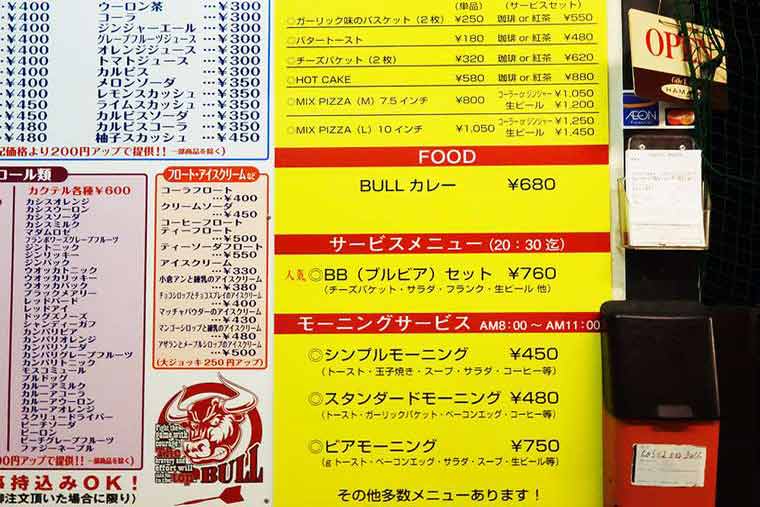 …¥400
…¥400
…¥400
…¥400
…¥350
…¥450
…¥450
…¥480
ウーロン茶 …¥300
コーラ …¥300
ジンジャーエール …¥300
グレープフルーツジュース …¥300
オレンジジュース …¥300
トマトジュース …¥300
カルピス …¥300
メロンソーダ …¥300
レモンスカッシュ …¥350
ライムスカッシュ …¥350
カルピスソーダ …¥350
カルピスコーラ …¥350
柚子スカッシュ …¥350
記価格より200円アップで提供!! 一部商品を除く)
コール類
カクテル各種¥600
カシスオレンジ
カシスウーロン
カシスソーダ
カシスミルク
マダムロゼ
フランボワーズグレープフルーツ
ジントニック
ジンリッキー
ジンバック
ウオッカトニック
ウオッカリッキー
ウオッカバック
ブラッディメアリー
レッドバード
レッドアイ
ドッグノーズ
シャンディーガフ
カンパリビア
カンパリソーダ
カンパリオレンジ
カンパリグレープフルーツ
モスコミュール
ブルドッグ
カルーアミルク
カルーアコーラ
カルーアウーロン
カルーアオレンジ
スクリュードライバー
ピーチソーダ
ピーチウーロン
ピーチグレープフルーツ
ファジーネーブル
00円アップで提供!! 一部商品を除く)
事持込みOK!
御注文頂いた場合に限り)
フロート・アイスクリームなど
コーラフロート
…¥400
クリームソーダ
…¥450
コーヒーフロート
ティーフロート
…¥500
ティーソーダフロート
…¥550
アイスクリーム
…¥330
小倉アンと練乳のアイスクリーム
…¥380
チョコシロップとチョコスプレイのアイスクリーム
…¥400
マッチャパウダーのアイスクリーム
…¥430
マンゴーシロップと練乳のアイスクリーム
…¥480
アザランとメープルシロップのアイスクリーム
…¥500
(大ジョッキ250円アップ)
Fight the
game with
courage.
The
bravery and
effort will
top
BULL
(単品) (サービスセット)
◎ガーリック味のバスケット(2枚) ¥250 珈琲 or 紅茶 ¥550
◎バタートースト ¥180 珈琲 or 紅茶 ¥480
◎チーズバケット(2枚) ¥320 珈琲 or 紅茶 ¥620
◎HOT CAKE ¥580 珈琲 or 紅茶 ¥880
◎MIX PIZZA (M) 7.5インチ ¥800 コーラー or ジンジャー ¥1,050
生ビール ¥1,200
◎MIX PIZZA (L) 10インチ ¥1,050 コーラー or ジンジャー ¥1,250
生ビール ¥1,450
FOOD
BULL カレー ¥680
サービスメニュー (20:30 迄)
人気◎BB(ブルビア)セット ¥760
(チーズバケット・サラダ・フランク・生ビール 他)
モーニングサービス AM8:00 〜 AM11:00
◎シンプルモーニング ¥450
(トースト・玉子焼き・スープ・サラダ・コーヒー等)
◎スタンダードモーニング ¥480
(トースト・ガーリックバケット・ベーコンエッグ・コーヒー等)
◎ビアモーニング ¥750
(gトースト・ベーコンエッグ・サラダ・スープ・生ビール等)
その他多数メニューあります!
OPEN
HAMA
AEON